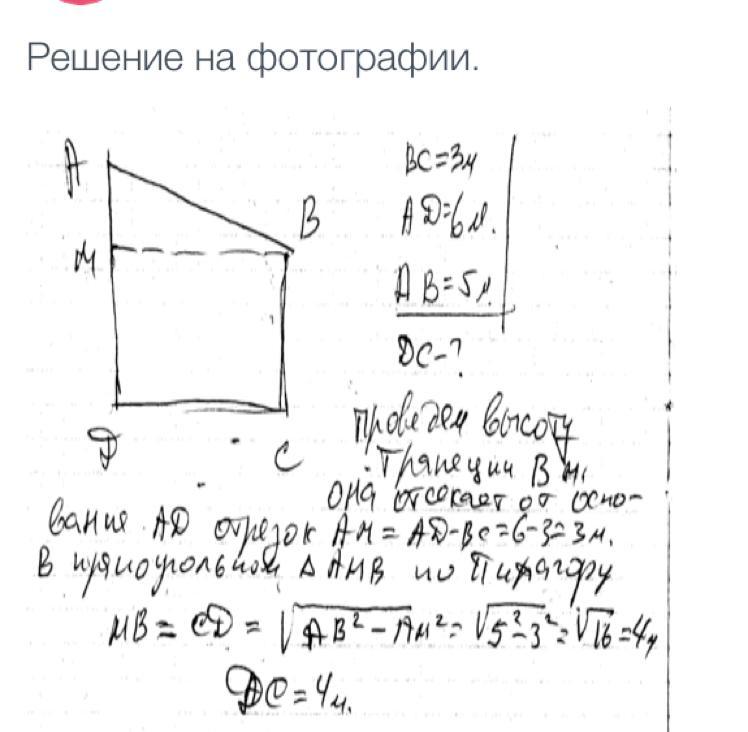 Решение на фотографии.
A
M
B
D
C
BC=3м
AD=6м.
AB=5м
DC-?
Проведем высоту
Трапеции BM,
она отсекает от осно-
вания AD отрезок AM = AD-BC=6-3=3м.
В прямоугольном Δ AMB по Пифагору
MB = CD = √AB²-AM² = √5²-3² = √16 = 4м
DC=4м.